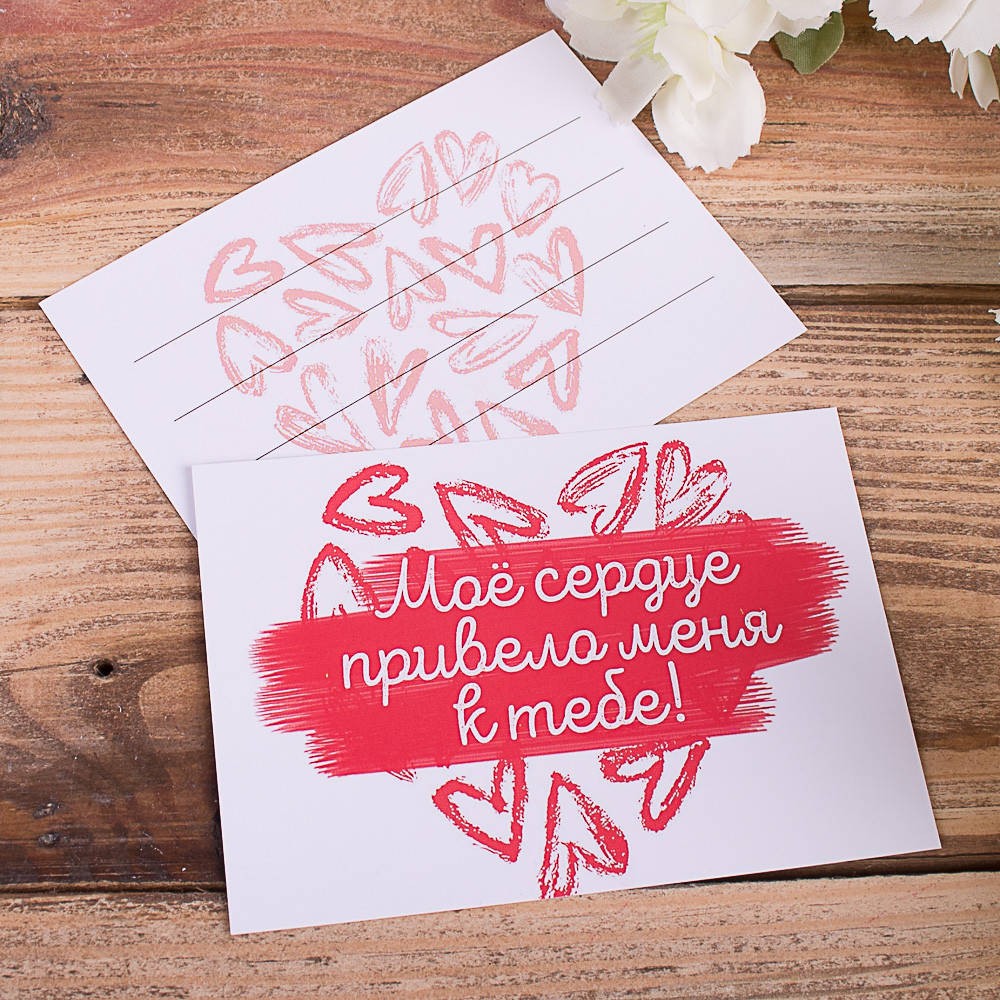 Моё сердце
привело меня
к тебе!